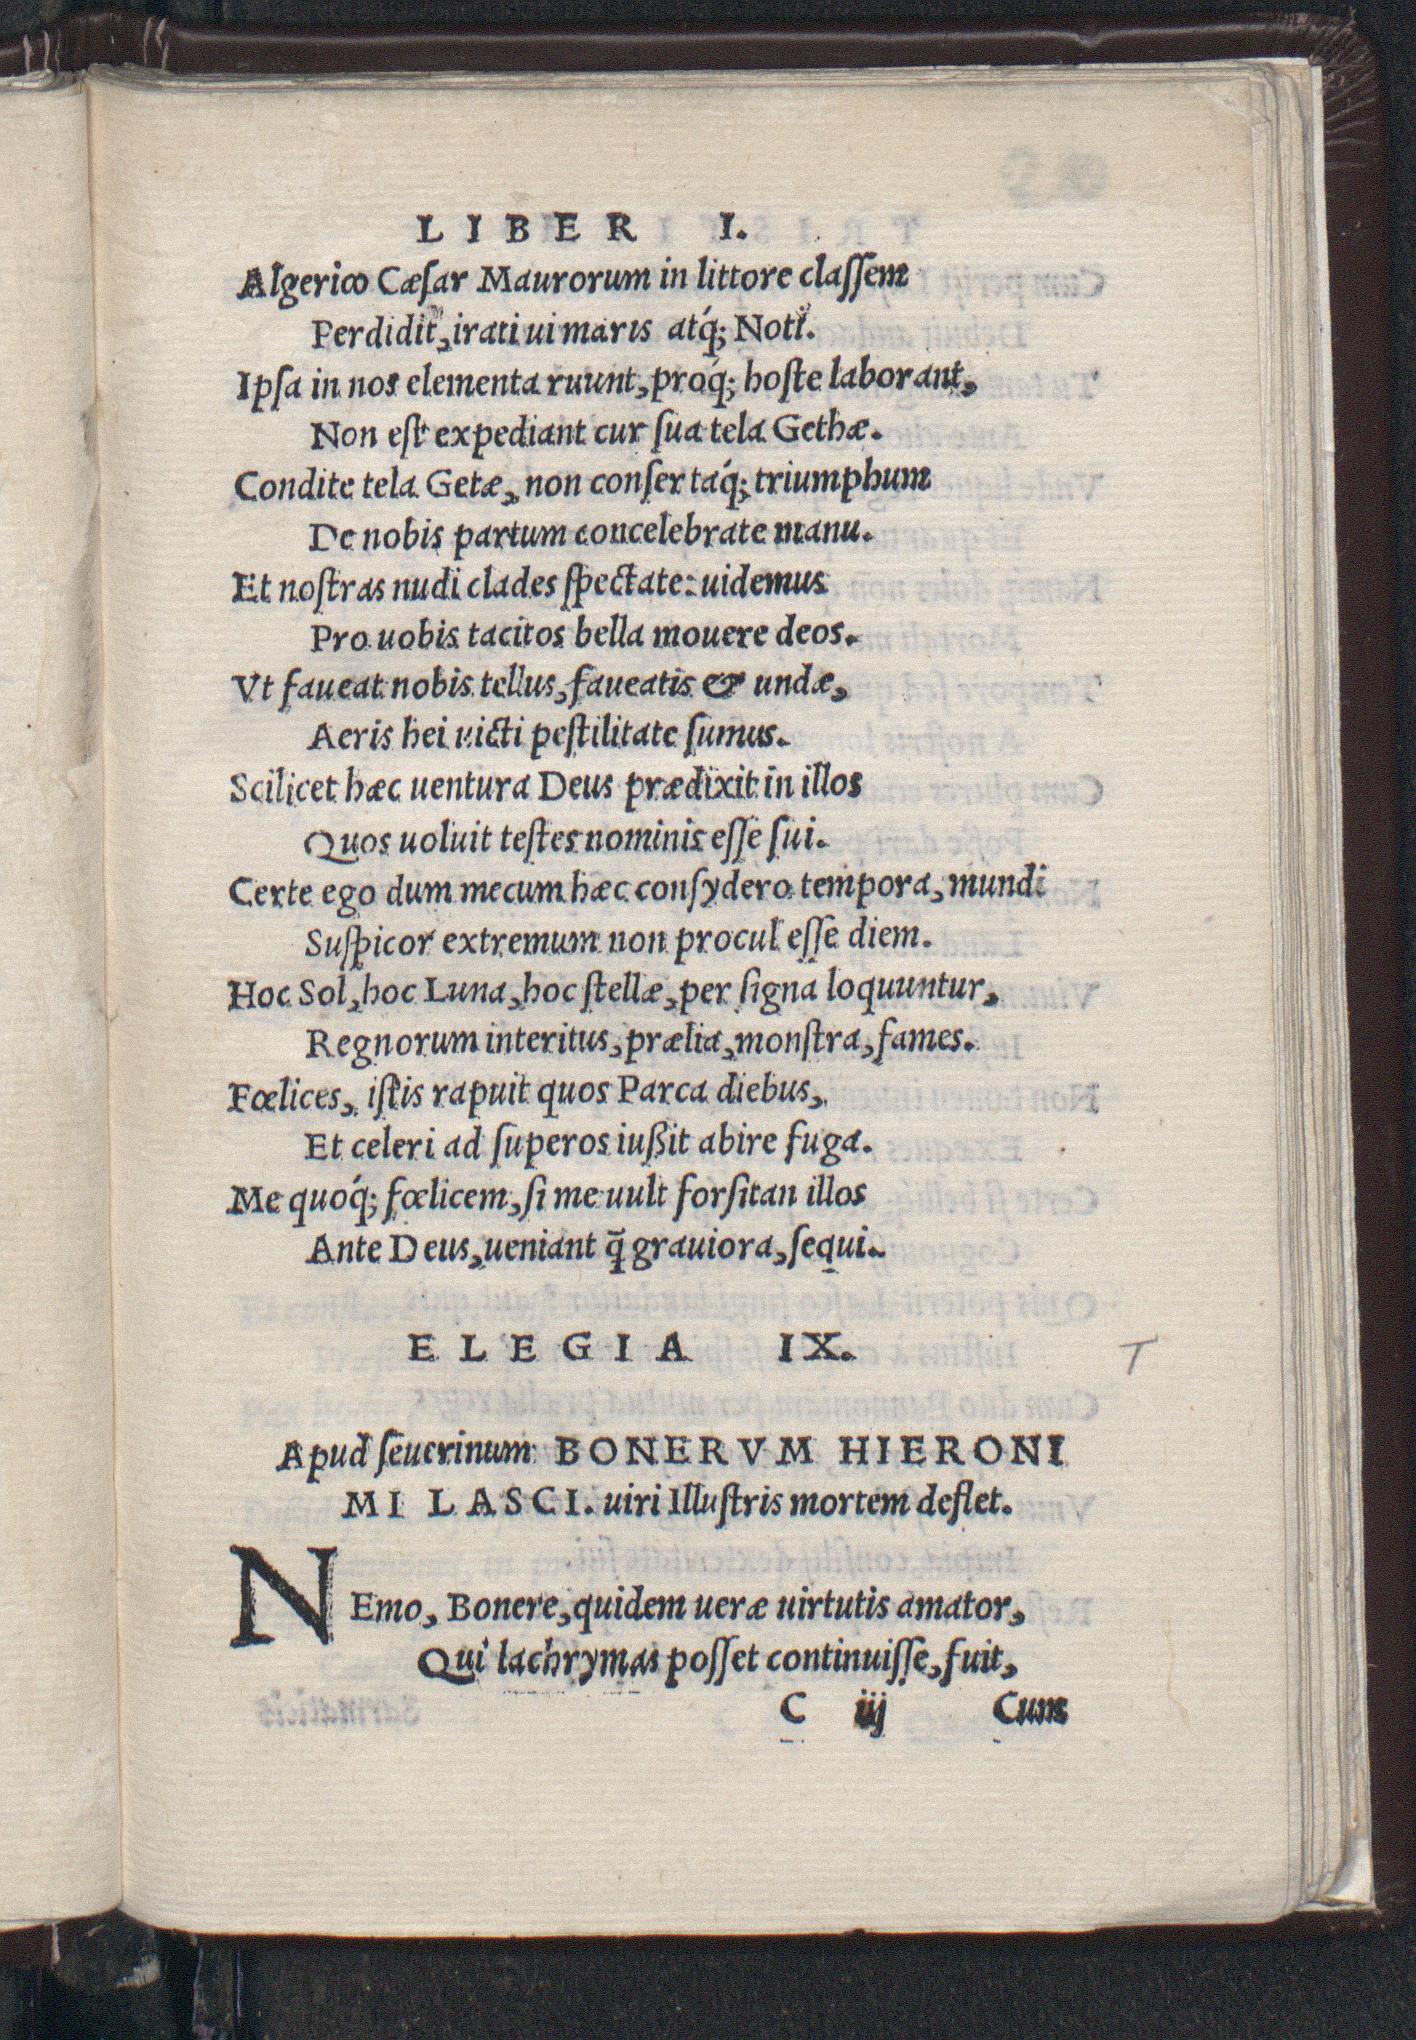 LIBER I.
Algerico Cæſar Maurorum in littore claſſem
Perdidit, irati ui maris atq́; Noti.
Ipſa in nos elementa ruunt, proq́; hoſte laborant,
Non eſt expediant cur ſua tela Gethæ.
Condite tela Getæ, non conſertaq́; triumphum
De nobis partum concelebrate manu.
Et noſtras nudi clades ſpectate: uidemus
Pro uobis tacitos bella mouere deos.
Vt faueat nobis tellus, faueatis & undæ,
Aeris hei uicti peſtilitate ſumus.
Scilicet hæc uentura Deus prædixit in illos
Quos uoluit teſtes nominis eſſe ſui.
Certe ego dum mecum hæc conſydero tempora, mundi
Suſpicor extremum non procul eſſe diem.
Hoc Sol, hoc Luna, hoc ſtellæ, per ſigna loquuntur,
Regnorum interitus, prælia, monſtra, fames.
Fœlices, iſtis rapuit quos Parca diebus,
Et celeri ad ſuperos iußit abire fuga.
Me quoq́; fœlicem, ſi me uult forſitan illos
Ante Deus, ueniant q̃ grauiora, ſequi.
ELEGIA IX.
T
Apud ſeuerinum BONERVM HIERONI
MI LASCI. uiri Illuſtris mortem deflet.
NEmo, Bonere, quidem ueræ uirtutis amator,
Qui lachrymas poſſet continuiſſe, fuit,
C iij Cum